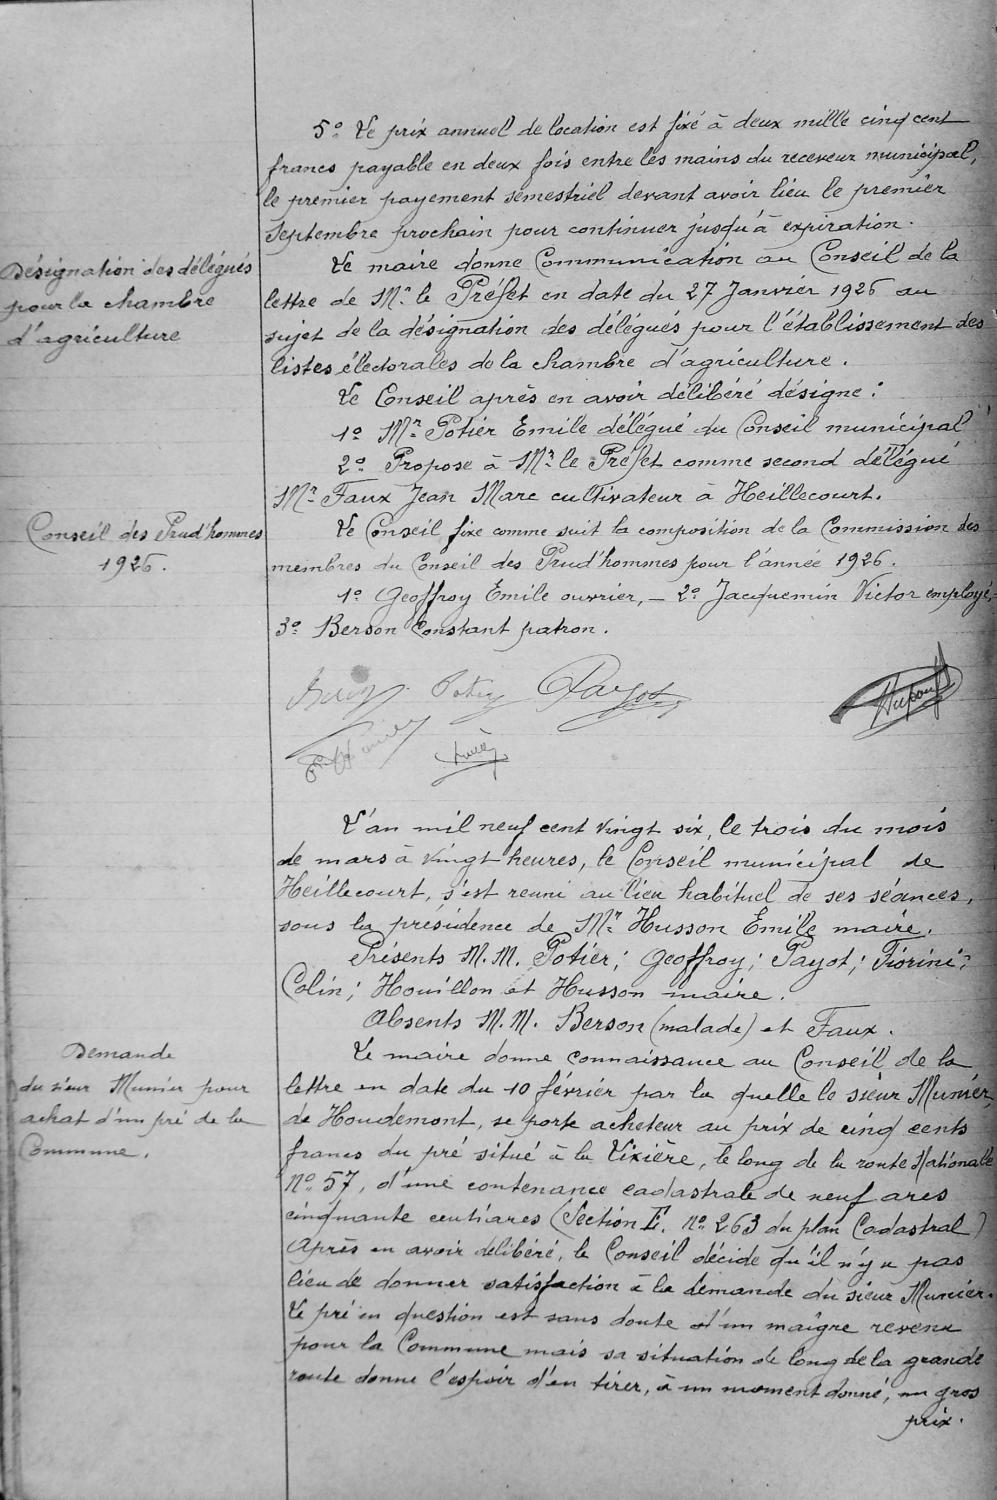 5º Le prix annuel de location est fixé à deux mille cinq cent
francs payable en deux fois entre les mains du receveur municipal,
le premier payement semestriel devant avoir lieu le premier
Septembre prochain pour continuer jusqu'à expiration.
Désignation des délégués
pour la chambre
d'agriculture
Le maire donne Communication au Conseil de la
lettre de Mr le Préfet en date du 27 Janvier 1926 au
sujet de la désignation des délégués pour l'établissement des
listes électorales de la chambre d'agriculture.
Le Conseil après en avoir délibéré désigne :
1º Mr Potier Emile délégué du Conseil municipal
2º Propose à Mr le Préfet comme second délégué
Mr Faux Jean Marc cultivateur à Heillecourt.
Conseil des Prud'hommes
1926.
Le Conseil fixe comme suit la composition de la Commission des
membres du Conseil des Prud'hommes pour l'année 1926.
1º Geoffroy Emile ouvrier, — 2º Jacquemin Victor employé,
3º Berson Constant patron.
Potier Payot
L'an mil neuf cent vingt six, le trois du mois
de mars à vingt heures, le Conseil municipal de
Heillecourt, s'est reuni au lieu habituel de ses séances,
sous la présidence de Mr Husson Emile maire.
Présents M.M. Potier ; Geoffroy ; Payot ; Fiorini ;
Colin ; Houillon et Husson maire.
Absents M.M. Berson (malade) et Faux.
Demande
du sieur Munier pour
achat d'un pré de la
Commune.
Le maire donne connaissance au Conseil de la
lettre en date du 10 février par la quelle le sieur Munier,
de Houdemont, se porte acheteur au prix de cinq cents
francs du pré situé à la Vixière, le long de la route Nationale
Nº 57, d'une contenance cadastrale de neuf ares
cinquante centiares (Section E. nº 263 du plan Cadastral)
Après en avoir délibéré, le Conseil décide qu'il n'y a pas
lieu de donner satisfaction à la demande du sieur Munier.
Le pré en question est sans doute d'un maigre revenu
pour la Commune mais sa situation de long de la grande
route donne l'espoir d'en tirer, à un moment donné, un gros
prix.